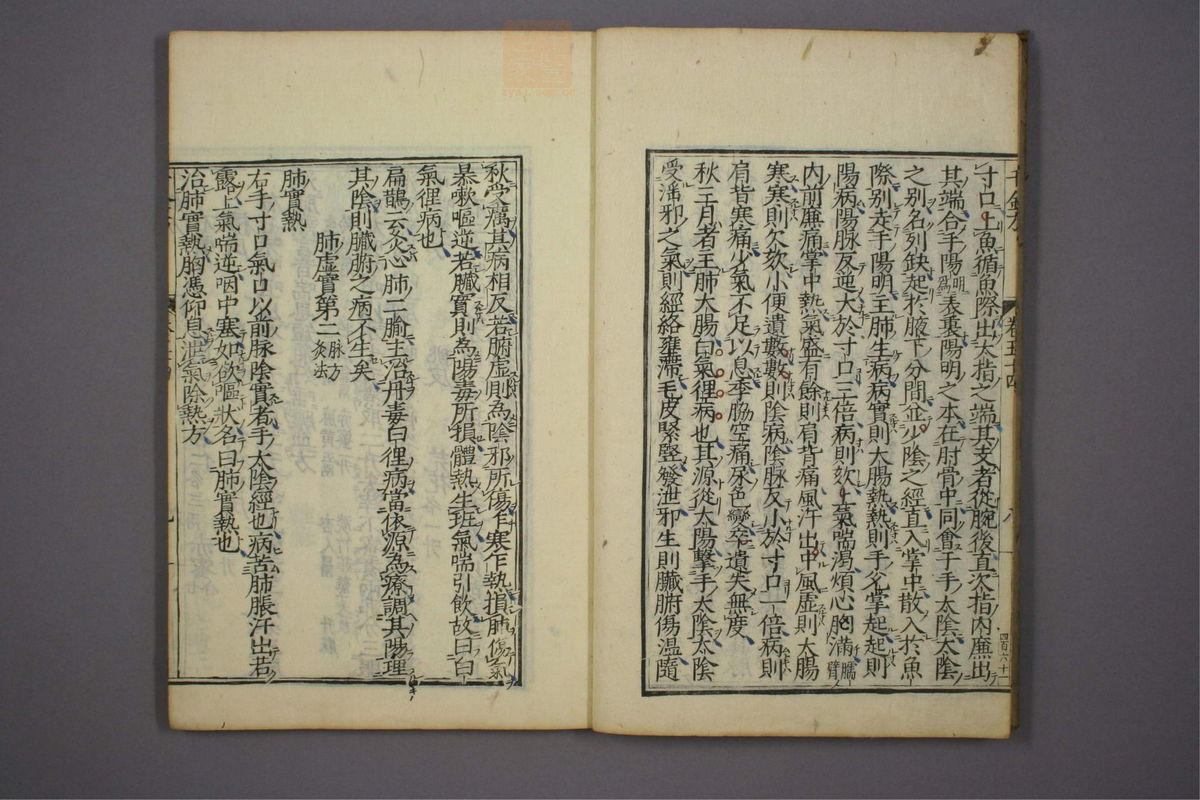 寸口上魚循魚際出大指之端其支者從腕後直次指內廉出
其端合手陽明為表裏陽明之本在肘骨中同會于手太陰太陰
之別名列缺起於腋下分間並少陰之經直入掌中散入於魚
際別走手陽明主肺生病病實則大腸熱熱則手爻掌起起則
陽病陽脉反逆大於寸口三倍病則欬上氣喘渴煩心胸滿臑臂
內前廉痛掌中熱氣盛有餘則肩背痛風汗出中風虛則大腸
寒寒則欠欬小便遺數數則陰病陰脉反小於寸口一倍病則
肩背寒痛少氣不足以息季脇空痛尿色變卒遺失無度
秋三月者主肺大腸曰氣徑病也其源從太陽擊手太陰太陰
受淫邪之氣則經絡壅滯毛皮緊竪發泄邪生則臟腑傷溫隨
四百六十一
秋受癘其病相反若腑虛則為陰邪所傷乍寒乍熱損肺傷氣
暴嗽嘔逆若臟實則為陽毒所損體熱生班氣喘引飲故曰白
氣徑病也
扁鵲云灸心肺二腧主治丹毒白徑病當依源為療調其陽理
其陰則臟腑之病不生矣
肺虛實第二脉方灸法
肺實熱
右手寸口氣口以前脉陰實者手太陰經也病苦肺脹汗出若
露上氣喘逆咽中塞如飲嘔狀名曰肺實熱也
治肺實熱胸憑仰息泄氣除熱方